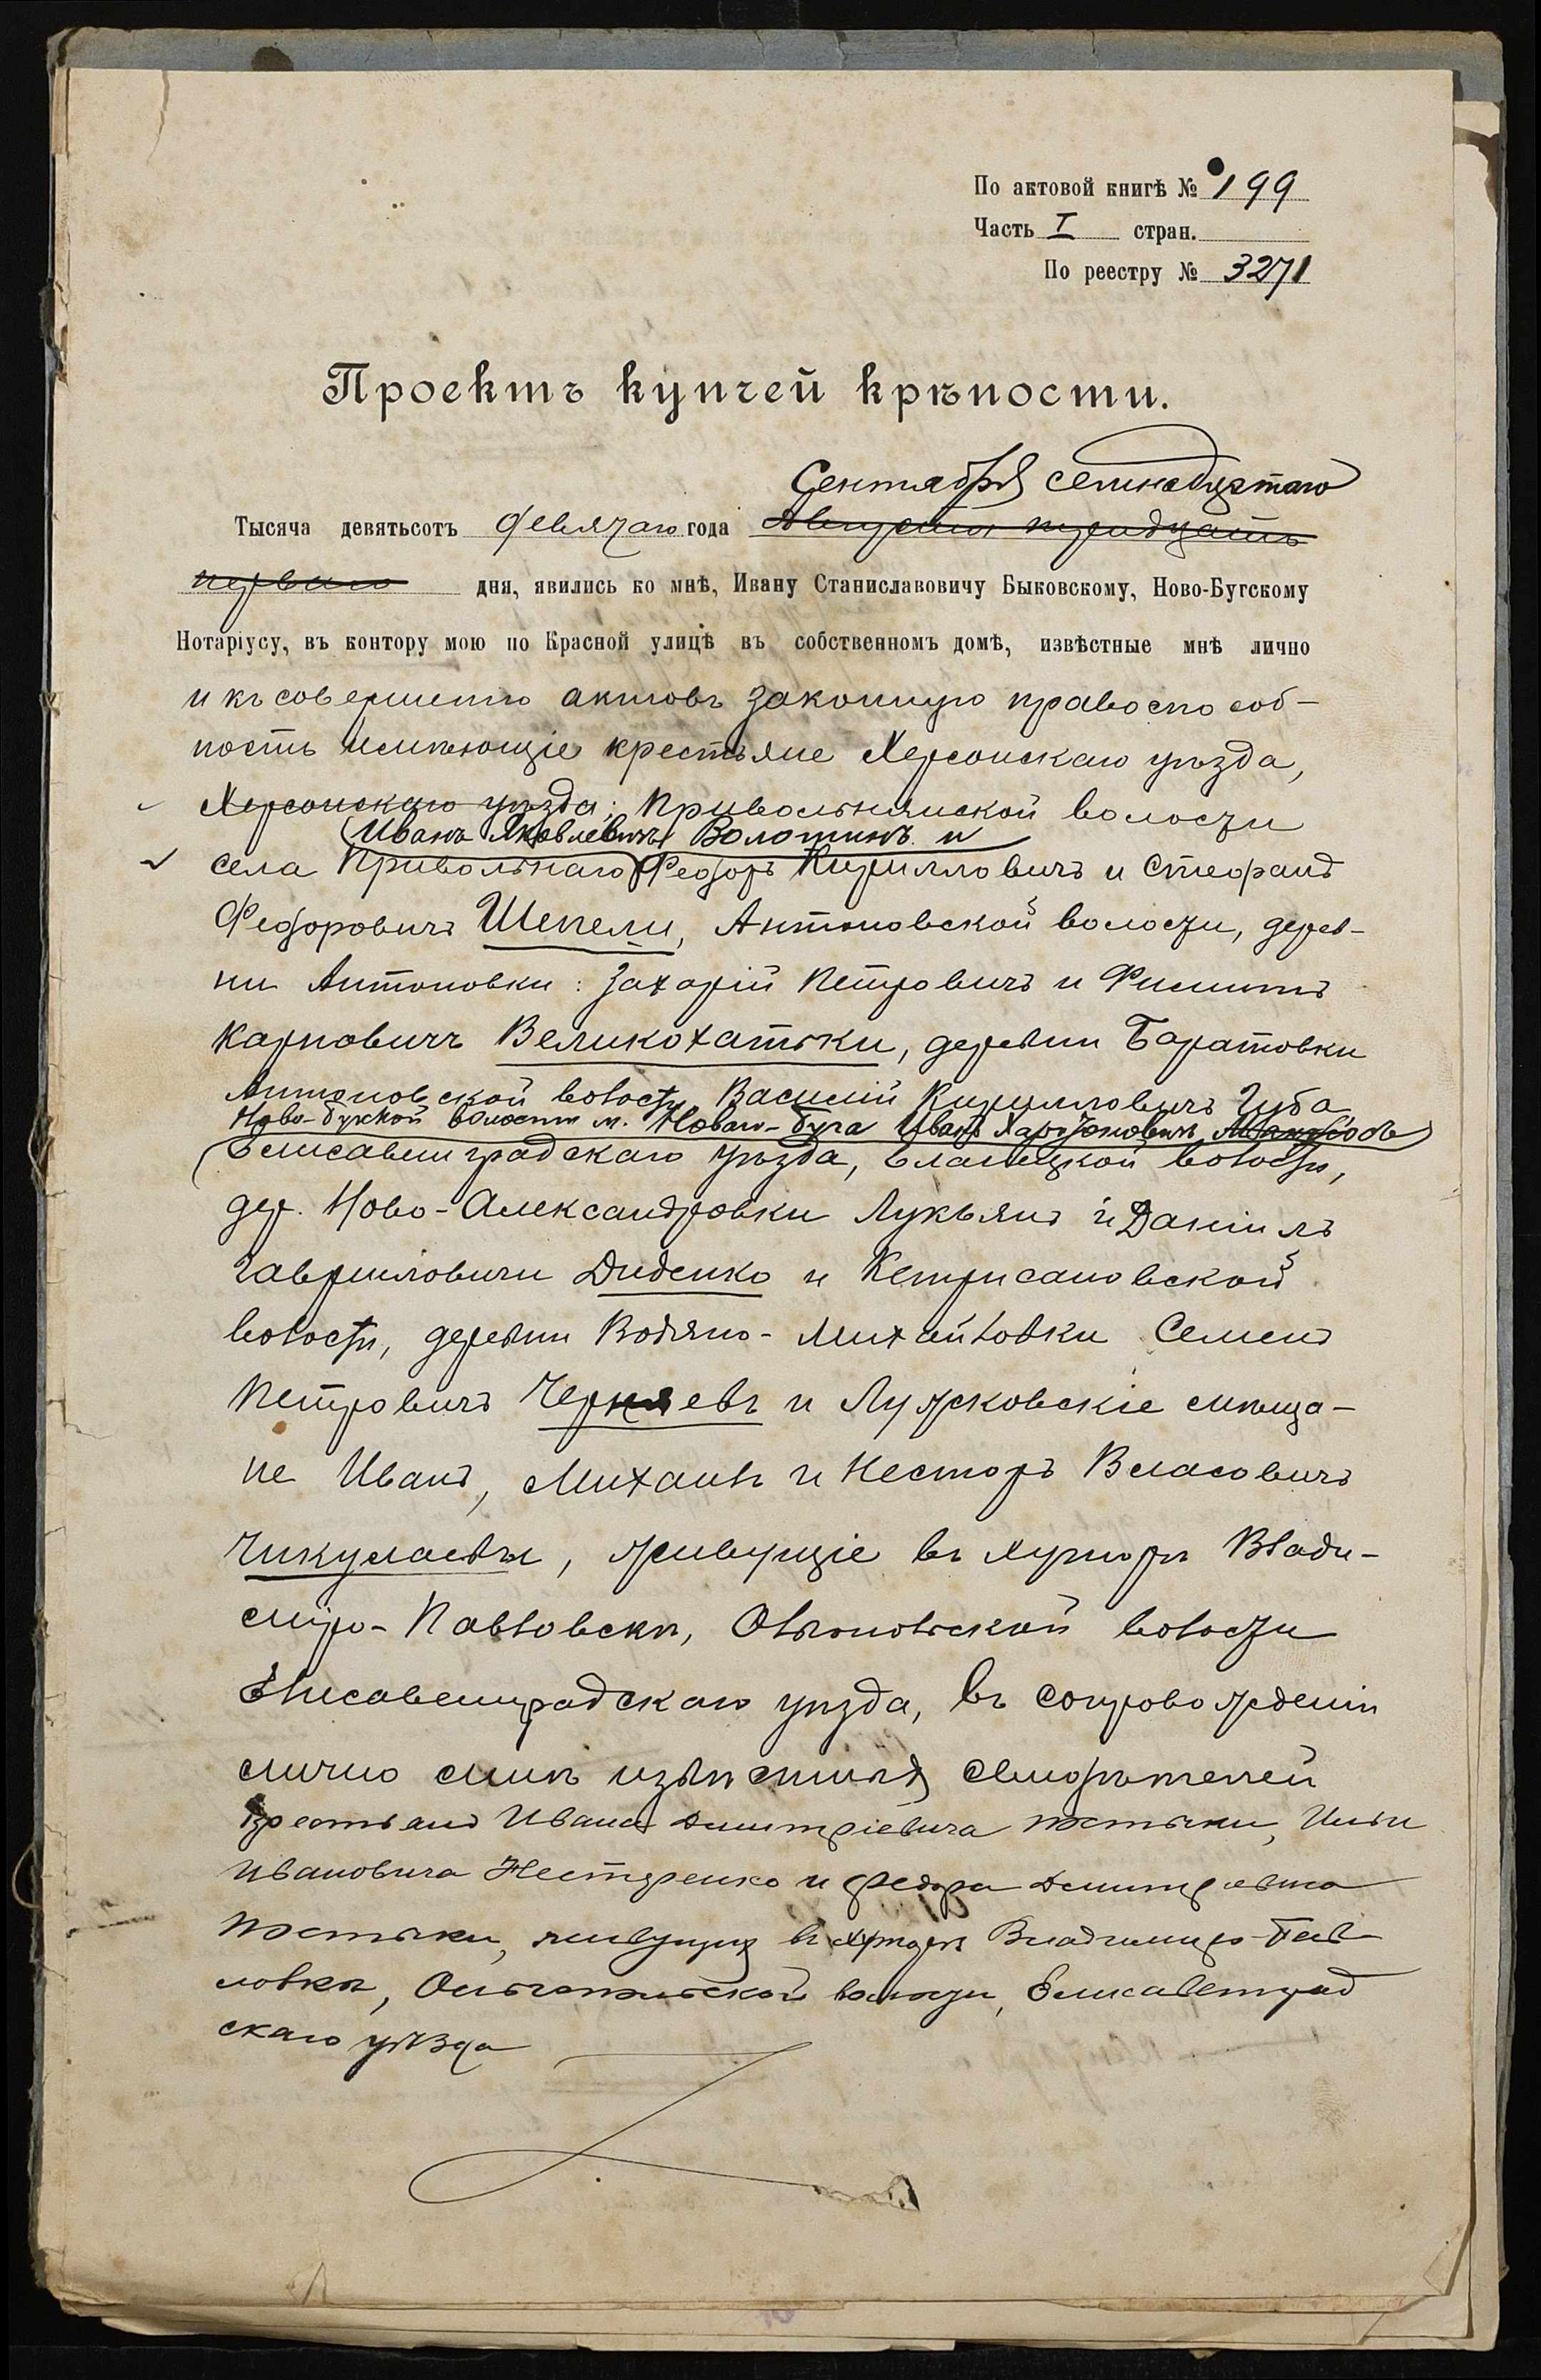 По актовой книгѣ № 199
Часть I стран.
По реестру № 3271
Проектъ купчей крѣпости.
Сентября семнадцатаго
Тысяча девятьсотъ девятаго года Августа тридцать
перваго дня, явились ко мнѣ, Ивану Станиславовичу Быковскому, Ново-Бугскому
Нотаріусу, въ контору мою по Красной улицѣ въ собственномъ домѣ, извѣстные мнѣ лично
и къ совершенію актовъ законную правоспособ-
ность имѣющіе крестьяне Херсонскаго уѣзда,
Херсонскаго уѣзда: Привольнянской волости
Иванъ Яковлевичъ Волошинъ и
села Привольнаго Федоръ Кирилловичъ и Стефанъ
Федоровичъ Шепели, Антоновской волости, дерев-
ни Антоновки: Захарій Петровичъ и Филиппъ
Карповичъ Великохатьки, деревни Баратовки
Антоновской волости Василій Кирилловичъ Губа
Ново-Бугской волости м. Новаго-Буга Иванъ Харитоновичъ
Елисаветградскаго уѣзда, Еланецкой волости,
дер. Ново-Александровки Лукьянъ и Даніилъ
Гавриловичи Диденко и Кетрисановской
волости, деревни Водяно-Михайловки Семенъ
Петровичъ Черняевъ и мѣща-
не Иванъ, Михаилъ и Несторъ Власовичъ
Чикулаевы, живущіе въ хуторѣ Влади-
міро-Павловскѣ, Ольгопольской волости
Елисаветградскаго уѣзда, въ сопровожденіи
лично мнѣ извѣстныхъ свидѣтелей
крестьянъ Ивана Дмитріевича Костюки, Ильи
Ивановича Нестеренко и Федора Дмитріевича
Костюки, живущихъ въ хуторѣ Владиміро-Пав-
ловкѣ, Ольгопольской волости, Елисаветград
скаго уѣзда